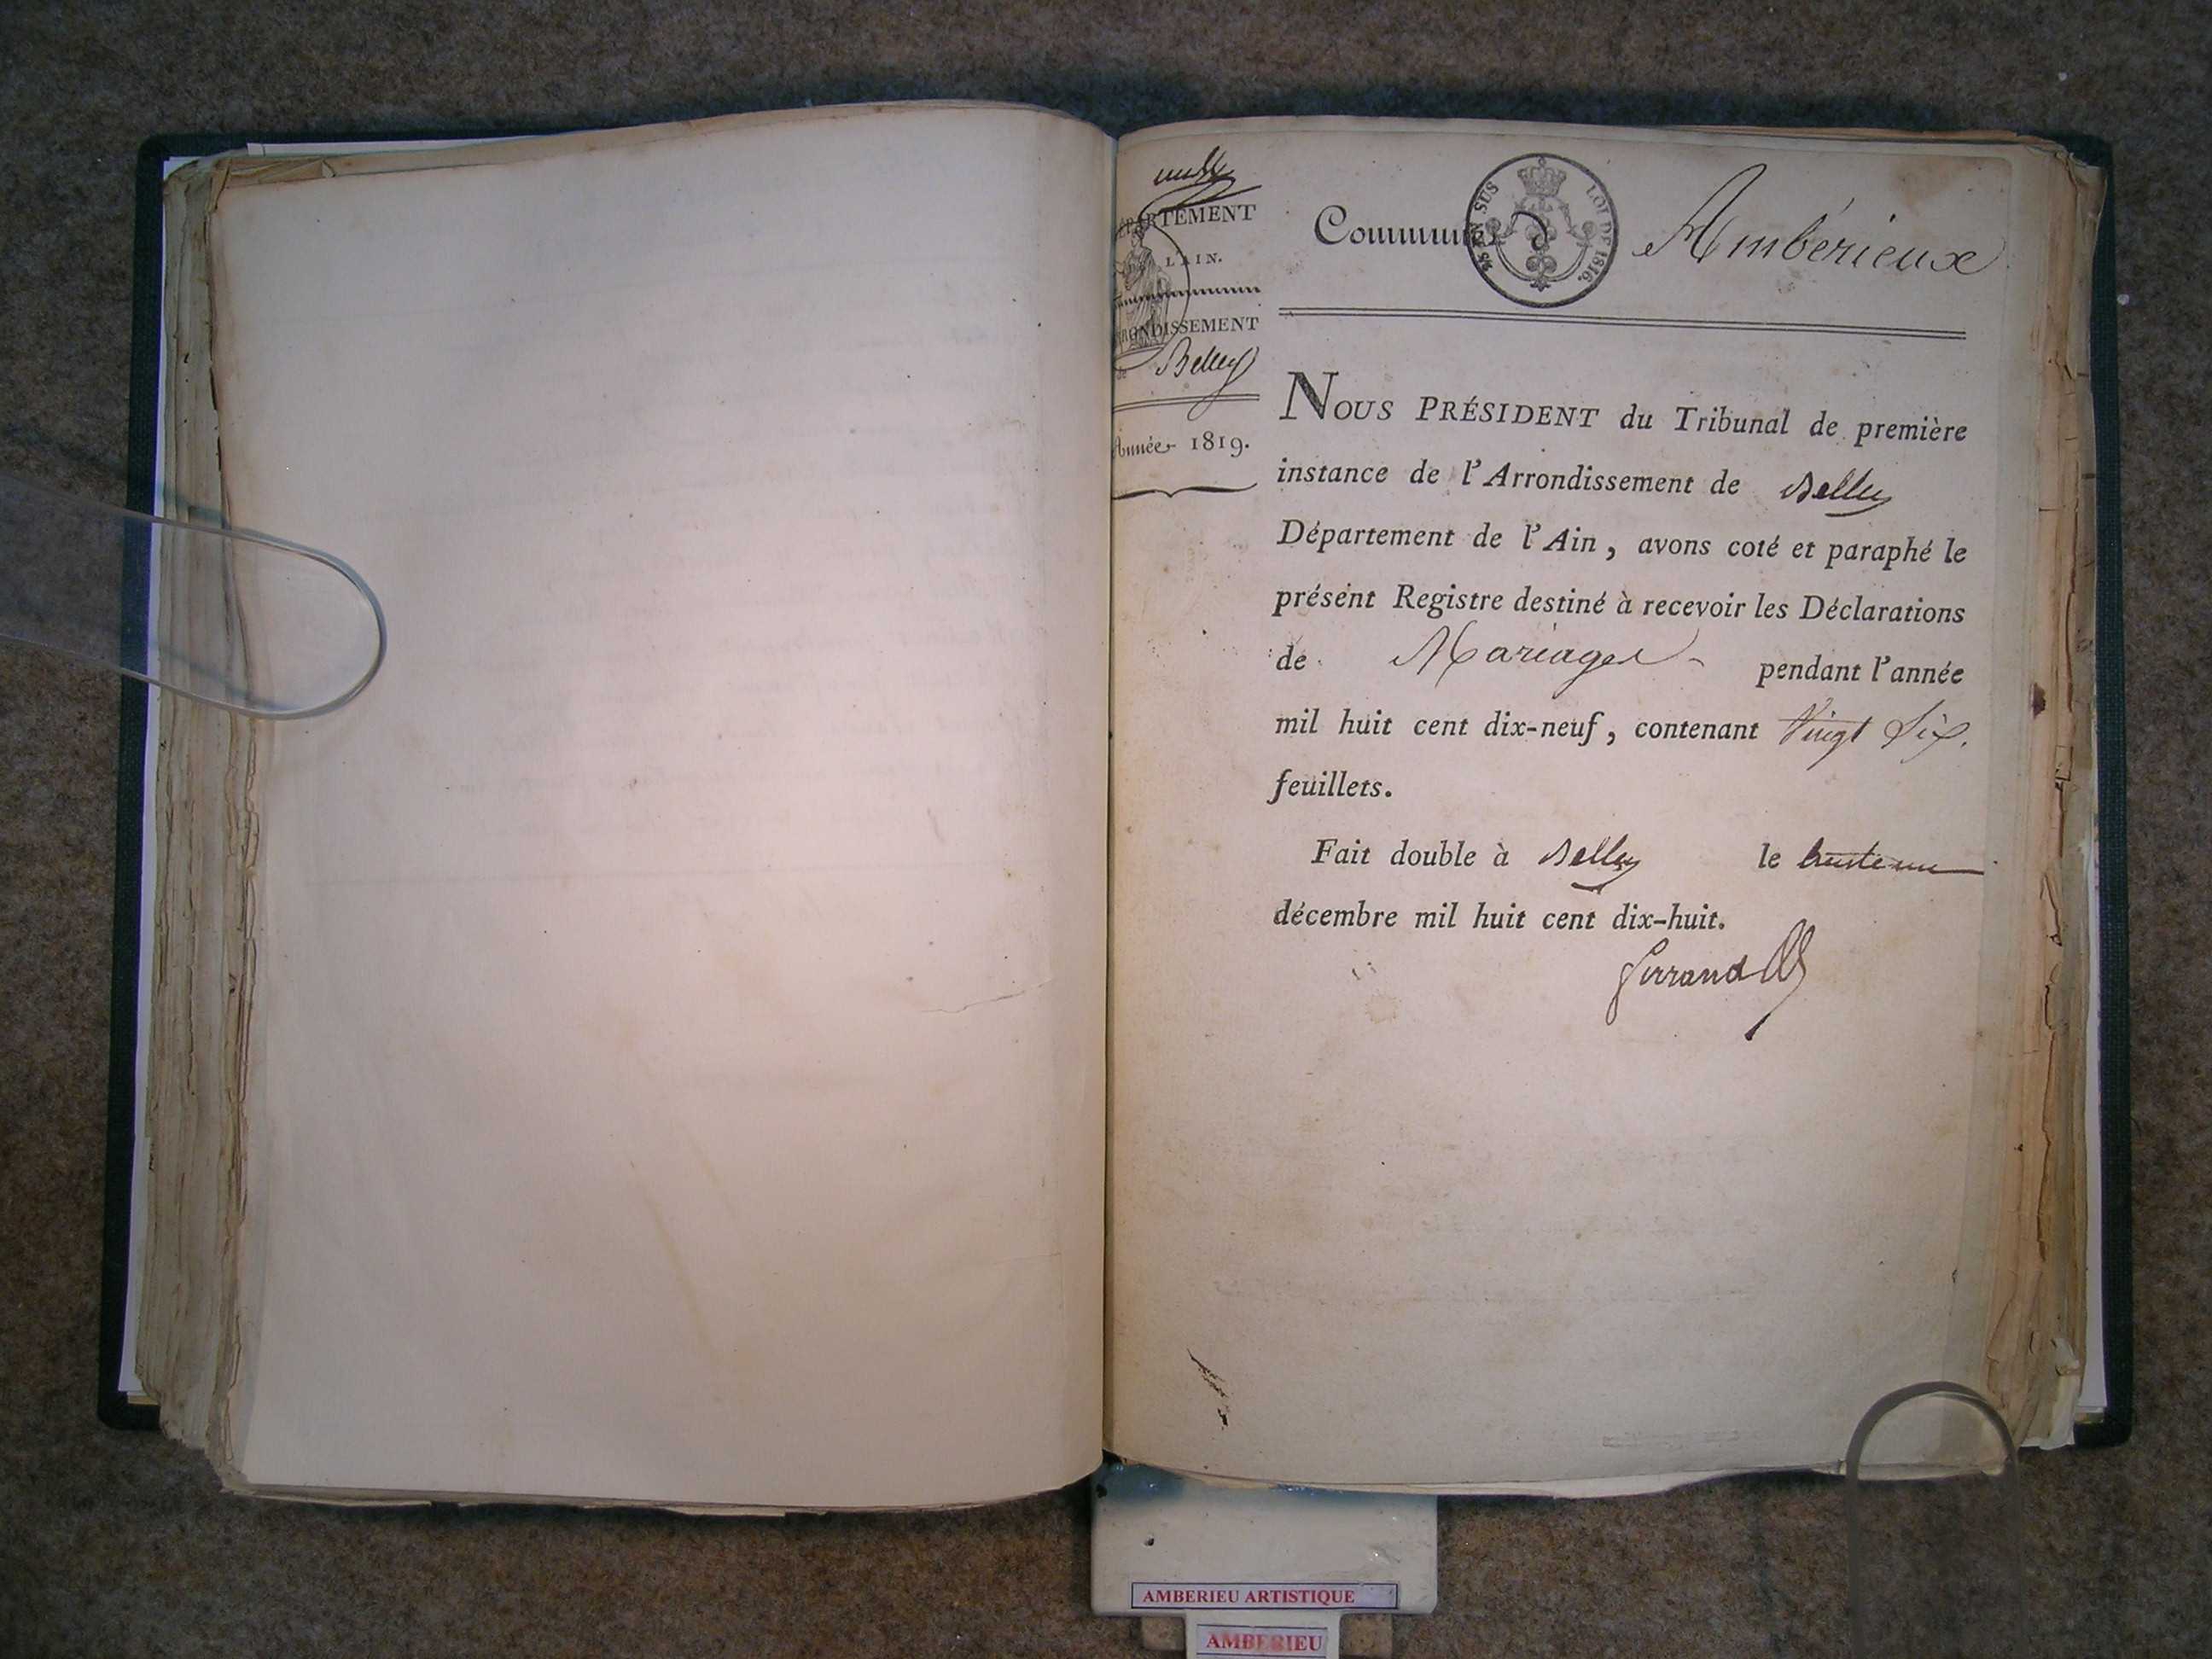 DÉPARTEMENT
L'AIN.
ARRONDISSEMENT
de Belley
Année 1819.
Commune d'Ambérieux
LOI DE 1816.
NOUS PRÉSIDENT du Tribunal de première
instance de l'Arrondissement de Belley
Département de l'Ain, avons coté et paraphé le
présent Registre destiné à recevoir les Déclarations
de Mariages pendant l'année
mil huit cent dix-neuf, contenant Vingt Six.
feuillets.
Fait double à Belley le trente un
décembre mil huit cent dix-huit.
Ferrand
AMBERIEU ARTISTIQUE
AMBERIEU